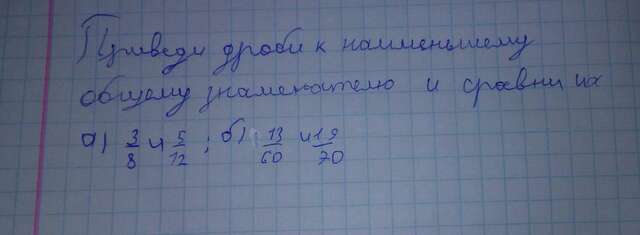 Приведи дроби к наименьшему
общему знаменателю и сравни их
а) 3/8 и 5/12; б) 13/60 и 19/70